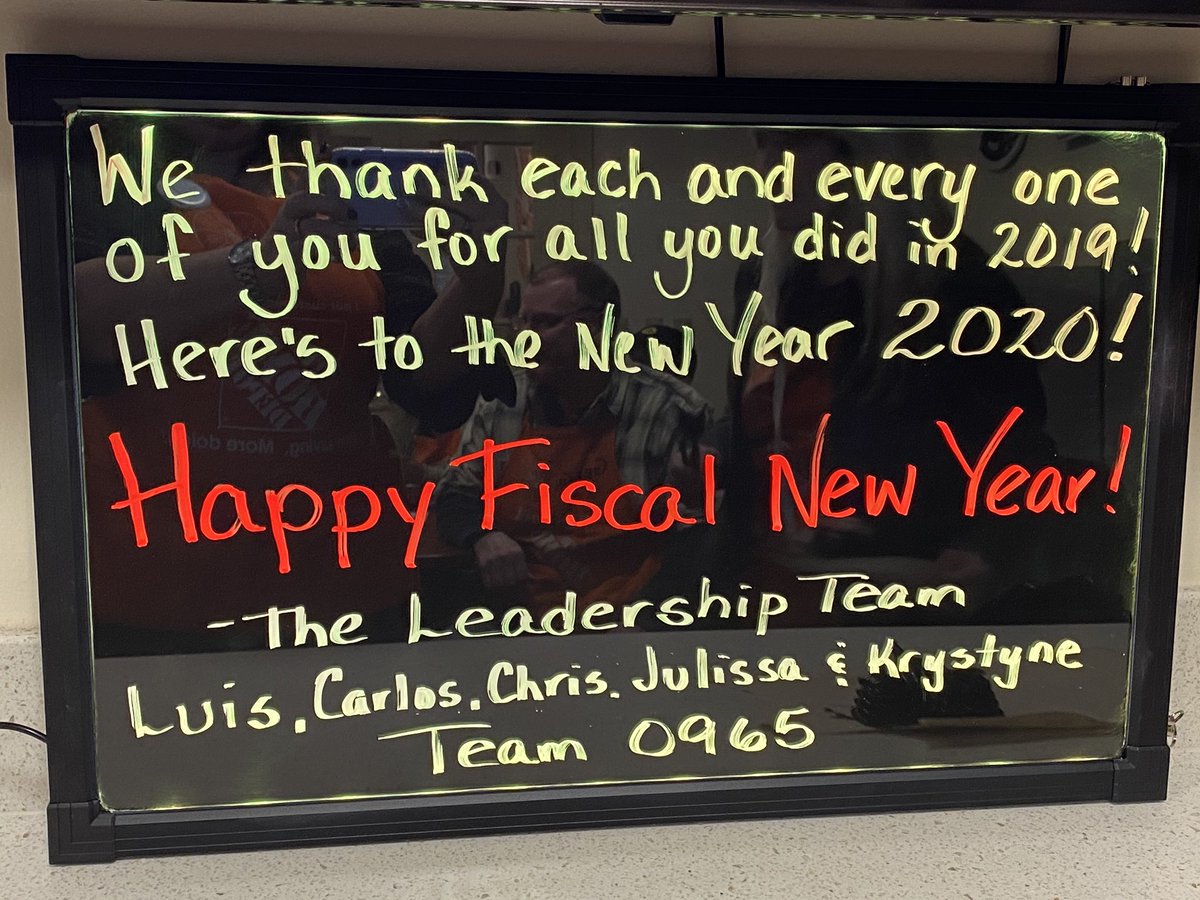 We thank each and every one
of you for all you did in 2019!
Here's to the New Year 2020!
Happy Fiscal New Year!
-The Leadership Team
Luis, Carlos, Chris, Julissa & Krystyne
Team 0965